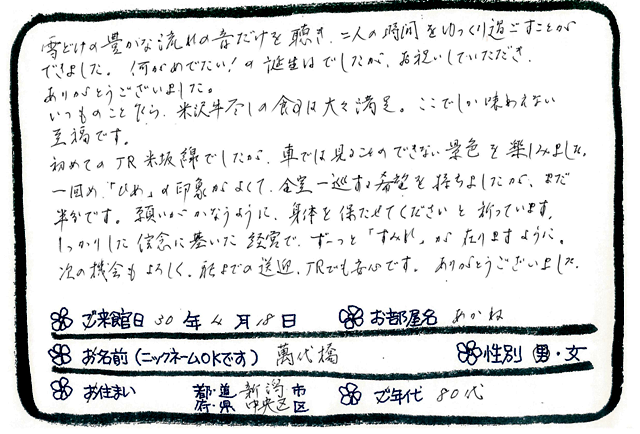 雪どけの豊かな流れの音だけを聴き、二人の時間をゆっくり過ごすことが
できました。何がめでたい!の誕生日でしたが、お祝いしていただき、
ありがとうございました。
いつものことながら、米沢牛尽しの食事は大々満足。ここでしか味わえない
至福です。
初めてのJR米坂線でしたが、車では見ることのできない景色を楽しみました。
一回め、「ひめ」の印象がよくて、全室一巡する希望を持ちましたが、まだ
半分です。願いがかなうように、身体を保たせてくださいと祈っています。
しっかりした信念に基いた経営で、ずーっと「すみれ」が在りますように。
次の機会もよろしく。駅までの送迎、JRでも安心です。ありがとうございました。
ご来館日 30年4月18日 お部屋名 あかね
お名前(ニックネームOKです) 萬代橋 性別 男・女
お住まい 都・道・府・県 新潟 中央区 市・区 ご年代 80代